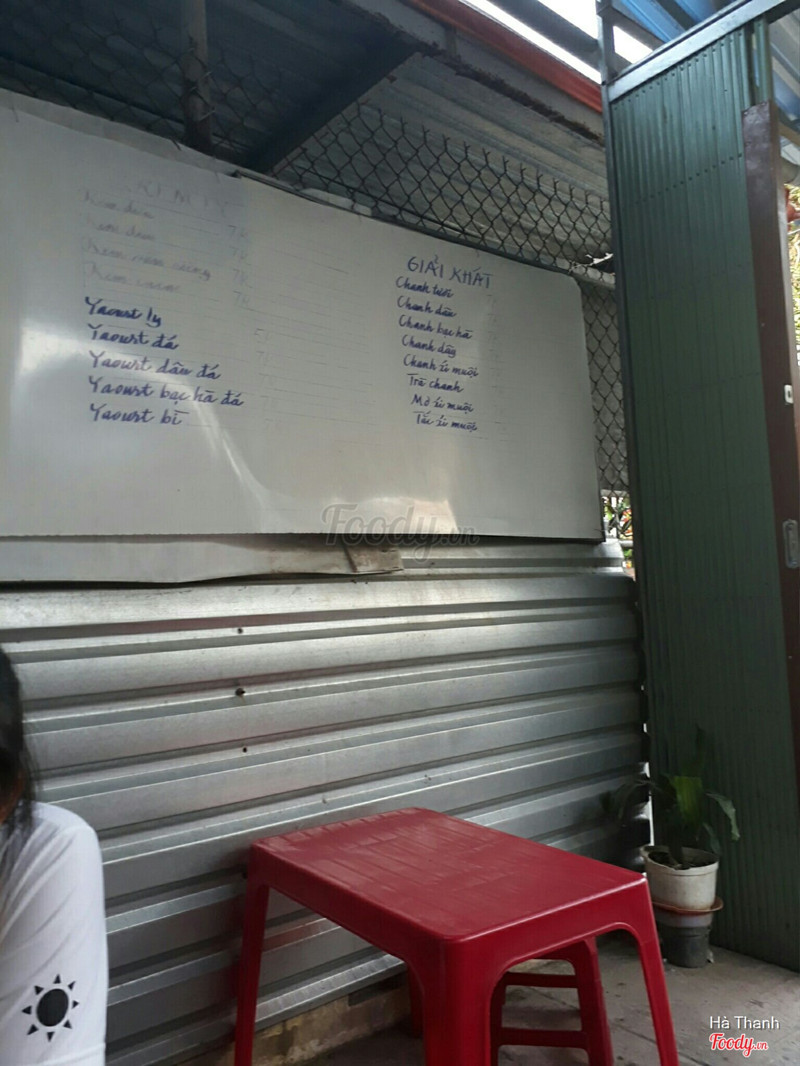 Kem dừa 7k
Kem dâu 7k
Kem 7k
Kem 7k
Yaourt ly
Yaourt đá
Yaourt dâu đá
Yaourt bạc hà đá
Yaourt bì
GIẢI KHÁT
Chanh tươi
Chanh dâu
Chanh bạc hà
Chanh dây
Chanh xí muội
Trà chanh
Mơ xí muội
Tắc xí muội
Foody.vn
Hà Thanh
Foody.vn